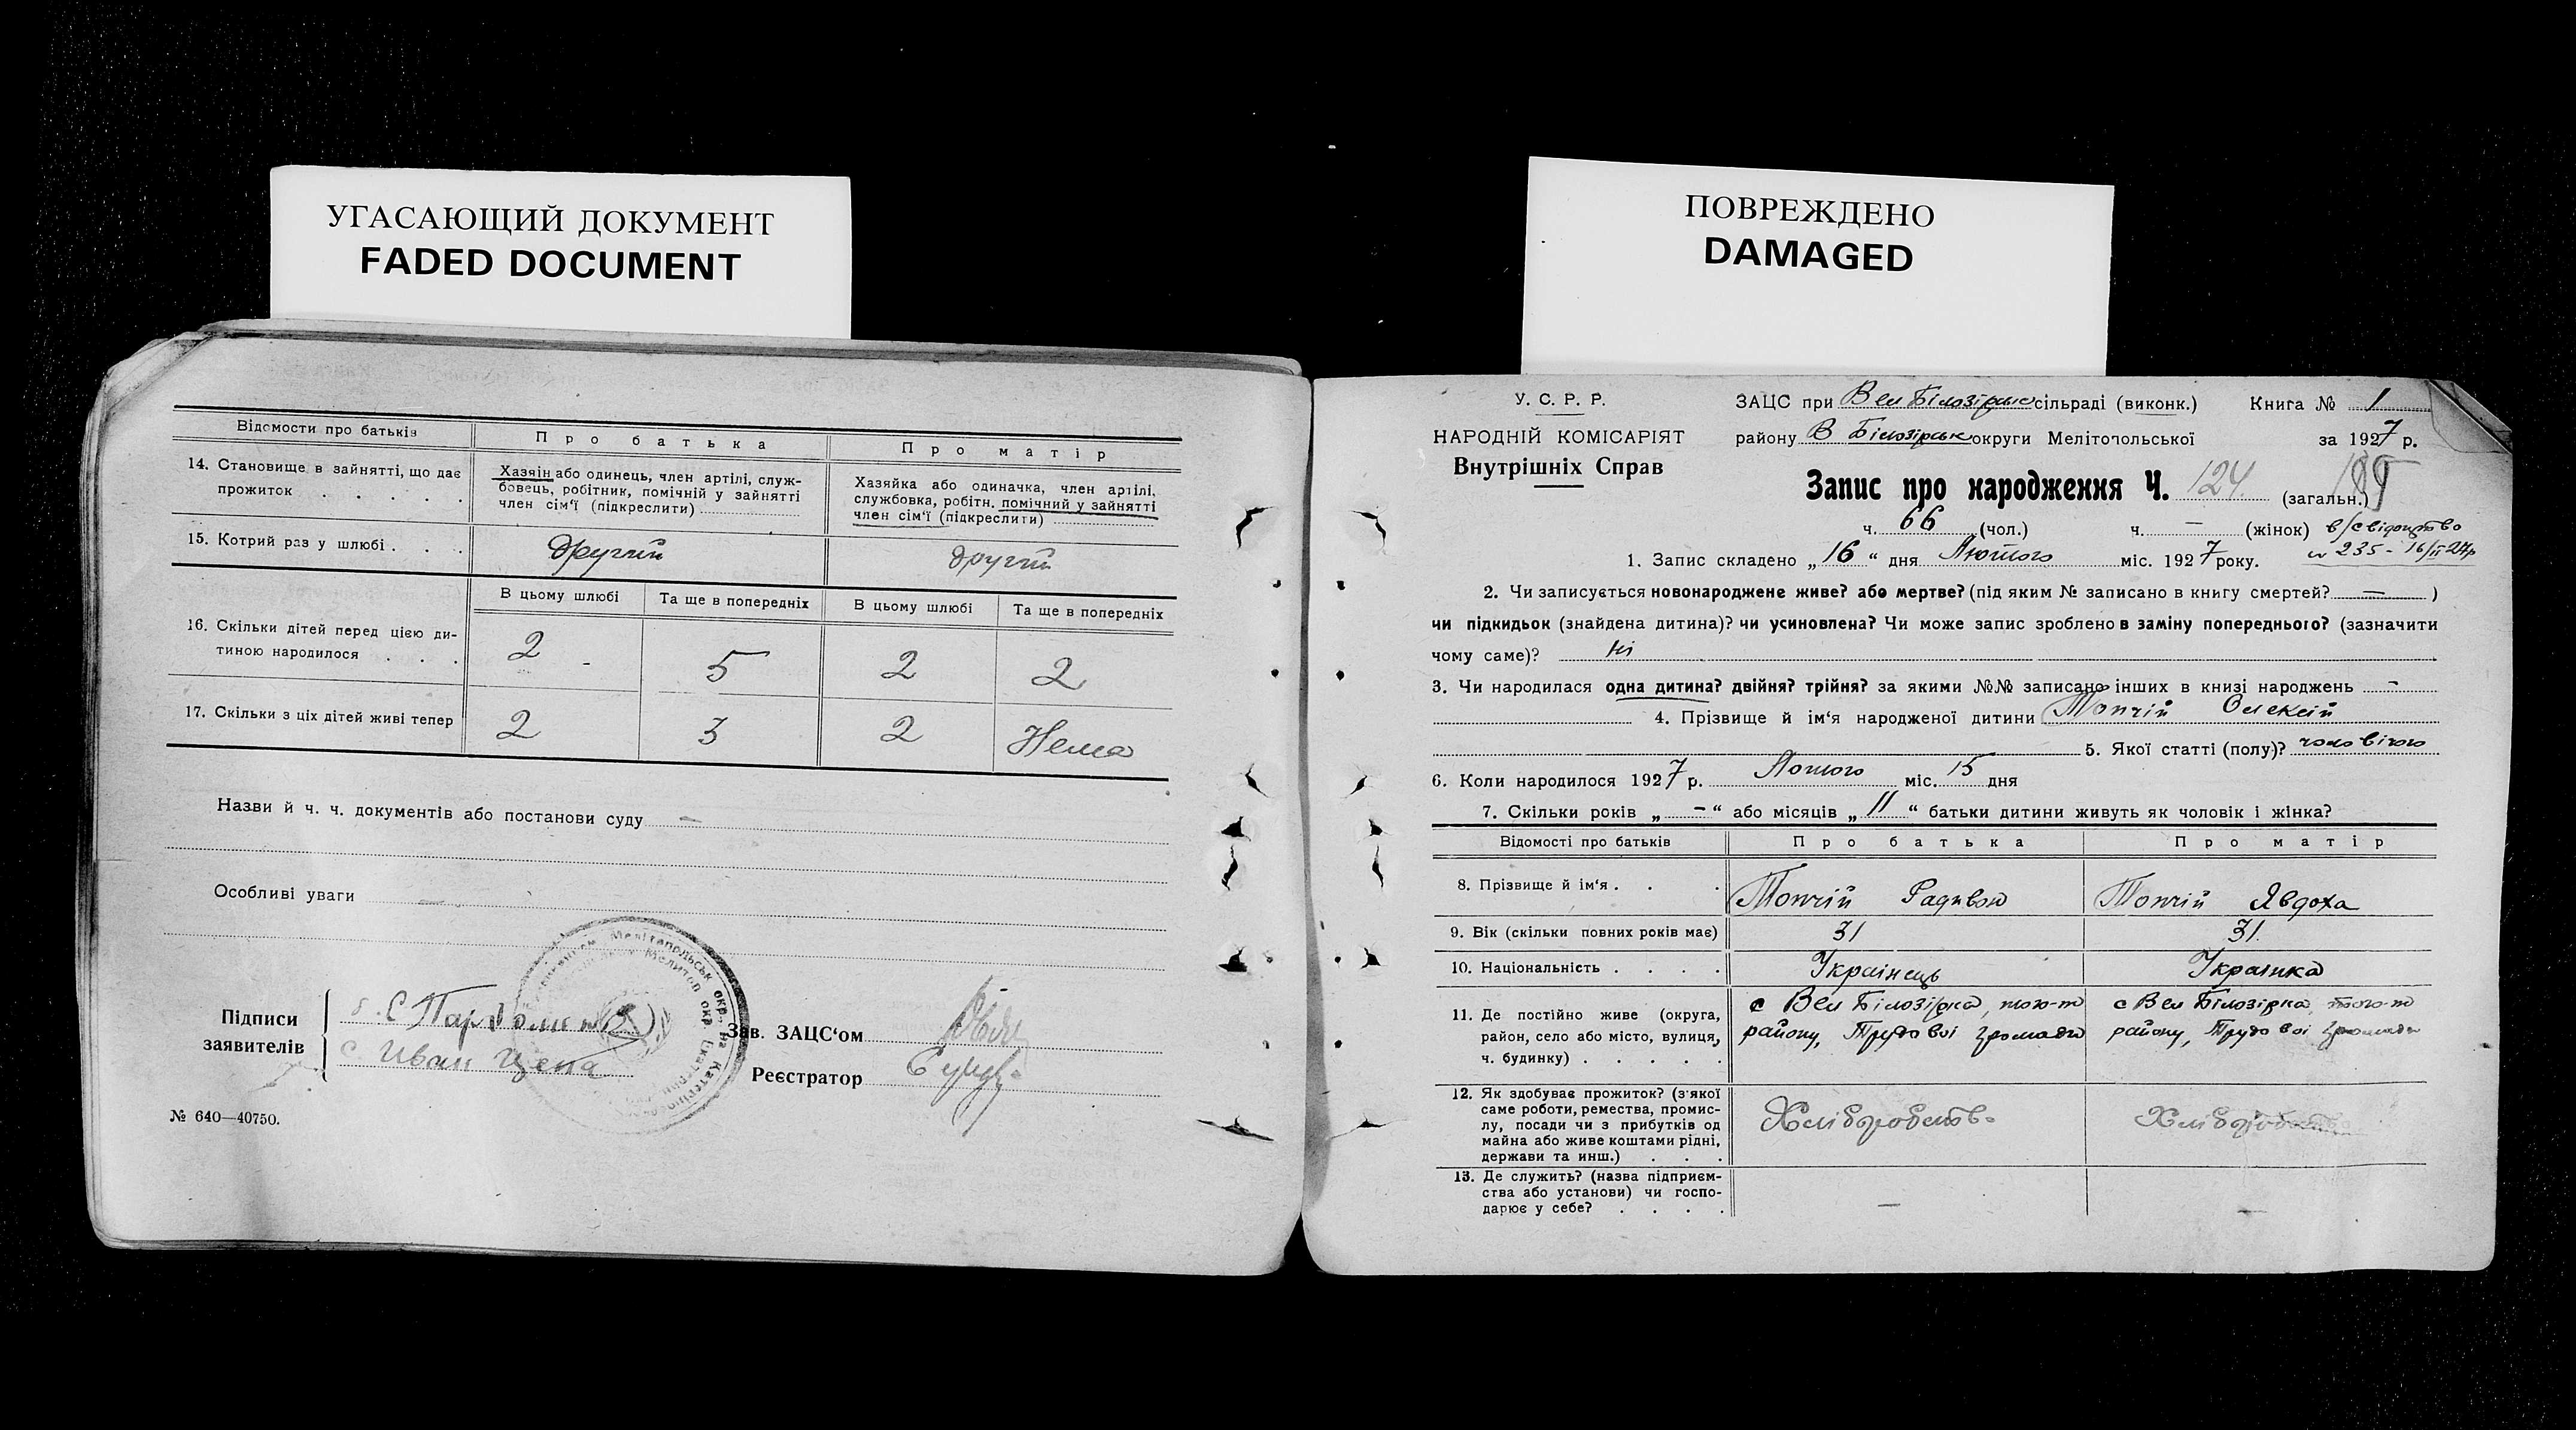 УГАСАЮЩИЙ ДОКУМЕНТ
FADED DOCUMENT
ПОВРЕЖДЕНО
DAMAGED
Відомости про батьків
Про батька
Про матір
14. Становище в зайнятті, що дає
прожиток . . . . .
Хазяін або одинець, член артілі, служ-
бовець, робітник, помічній у зайнятті
член сім'ї (підкреслити)
Хазяйка або одиначка, член артілі,
службовка, робітн. помічний у зайнятті
член сім'ї (підкреслити)
15. Котрий раз у шлюбі . . .
другий
другий
В цьому шлюбі
Та ще в попередніх
В цьому шлюбі
Та ще в попередніх
16. Скільки дітей перед цією ди-
тиною народилося . . .
2 - 5 2 2
17. Скільки з ціх дітей живі тепер
2 3 2 Нема
Назви й ч. ч. документів або постанови суду —
Особливі уваги —
Підписи
заявителів
с. Иван Цепа
Зав. ЗАЦС'ом
Реєстратор
№ 640—40750.
У. С. Р. Р.
НАРОДНІЙ КОМІСАРІЯТ
Внутрішніх Справ
ЗАЦС при Вел Білозірське сільраді (виконк.) Книга № 1
району В Білозірськ округи Мелітопольської за 1927 р.
Запис про народження Ч. 124 (загальн.)
ч. 66 (чол.) ч. — (жінок) в/свідоцтво
№ 235 - 16/II 27р
1. Запис складено „16“ дня Лютого міс. 1927 року.
2. Чи записується новонароджене живе? або мертве? (під яким № записано в книгу смертей? — )
чи підкидьок (знайдена дитина)? чи усиновлена? Чи може запис зроблено в заміну попереднього? (зазначити
чому саме)? ні
3. Чи народилася одна дитина? двійня? трійня? за якими №№ записано інших в книзі народжень -
4. Прізвище й ім'я народженої дитини Топчій Олексій
5. Якої статті (полу)? чоловічого
6. Коли народилося 1927 р. Лютого міс. 15 дня
7. Скільки років „ — “ або місяців „ 11 “ батьки дитини живуть як чоловік і жінка?
Відомості про батьків
Про батька
Про матір
8. Прізвище й ім'я . . .
Топчій Радивон
Топчій Явдоха
9. Вік (скільки повних років має)
31
31.
10. Національність . . . .
Українець
Українка
11. Де постійно живе (округа,
район, село або місто, вулиця,
ч. будинку) . . . . .
с Вел Білозірка, того-ж
району, Трудової громади
с Вел Білозірка, того-ж
району, Трудової громади
12. Як здобуває прожиток? (з якої
саме роботи, ремества, промис-
лу, посади чи з прибутків од
майна або живе коштами рідні,
держави та инш.) . . .
Хліборобств
Хлібороб
13. Де служить? (назва підприєм-
ства або установи) чи госпо-
дарює у себе? . . . .
—
—